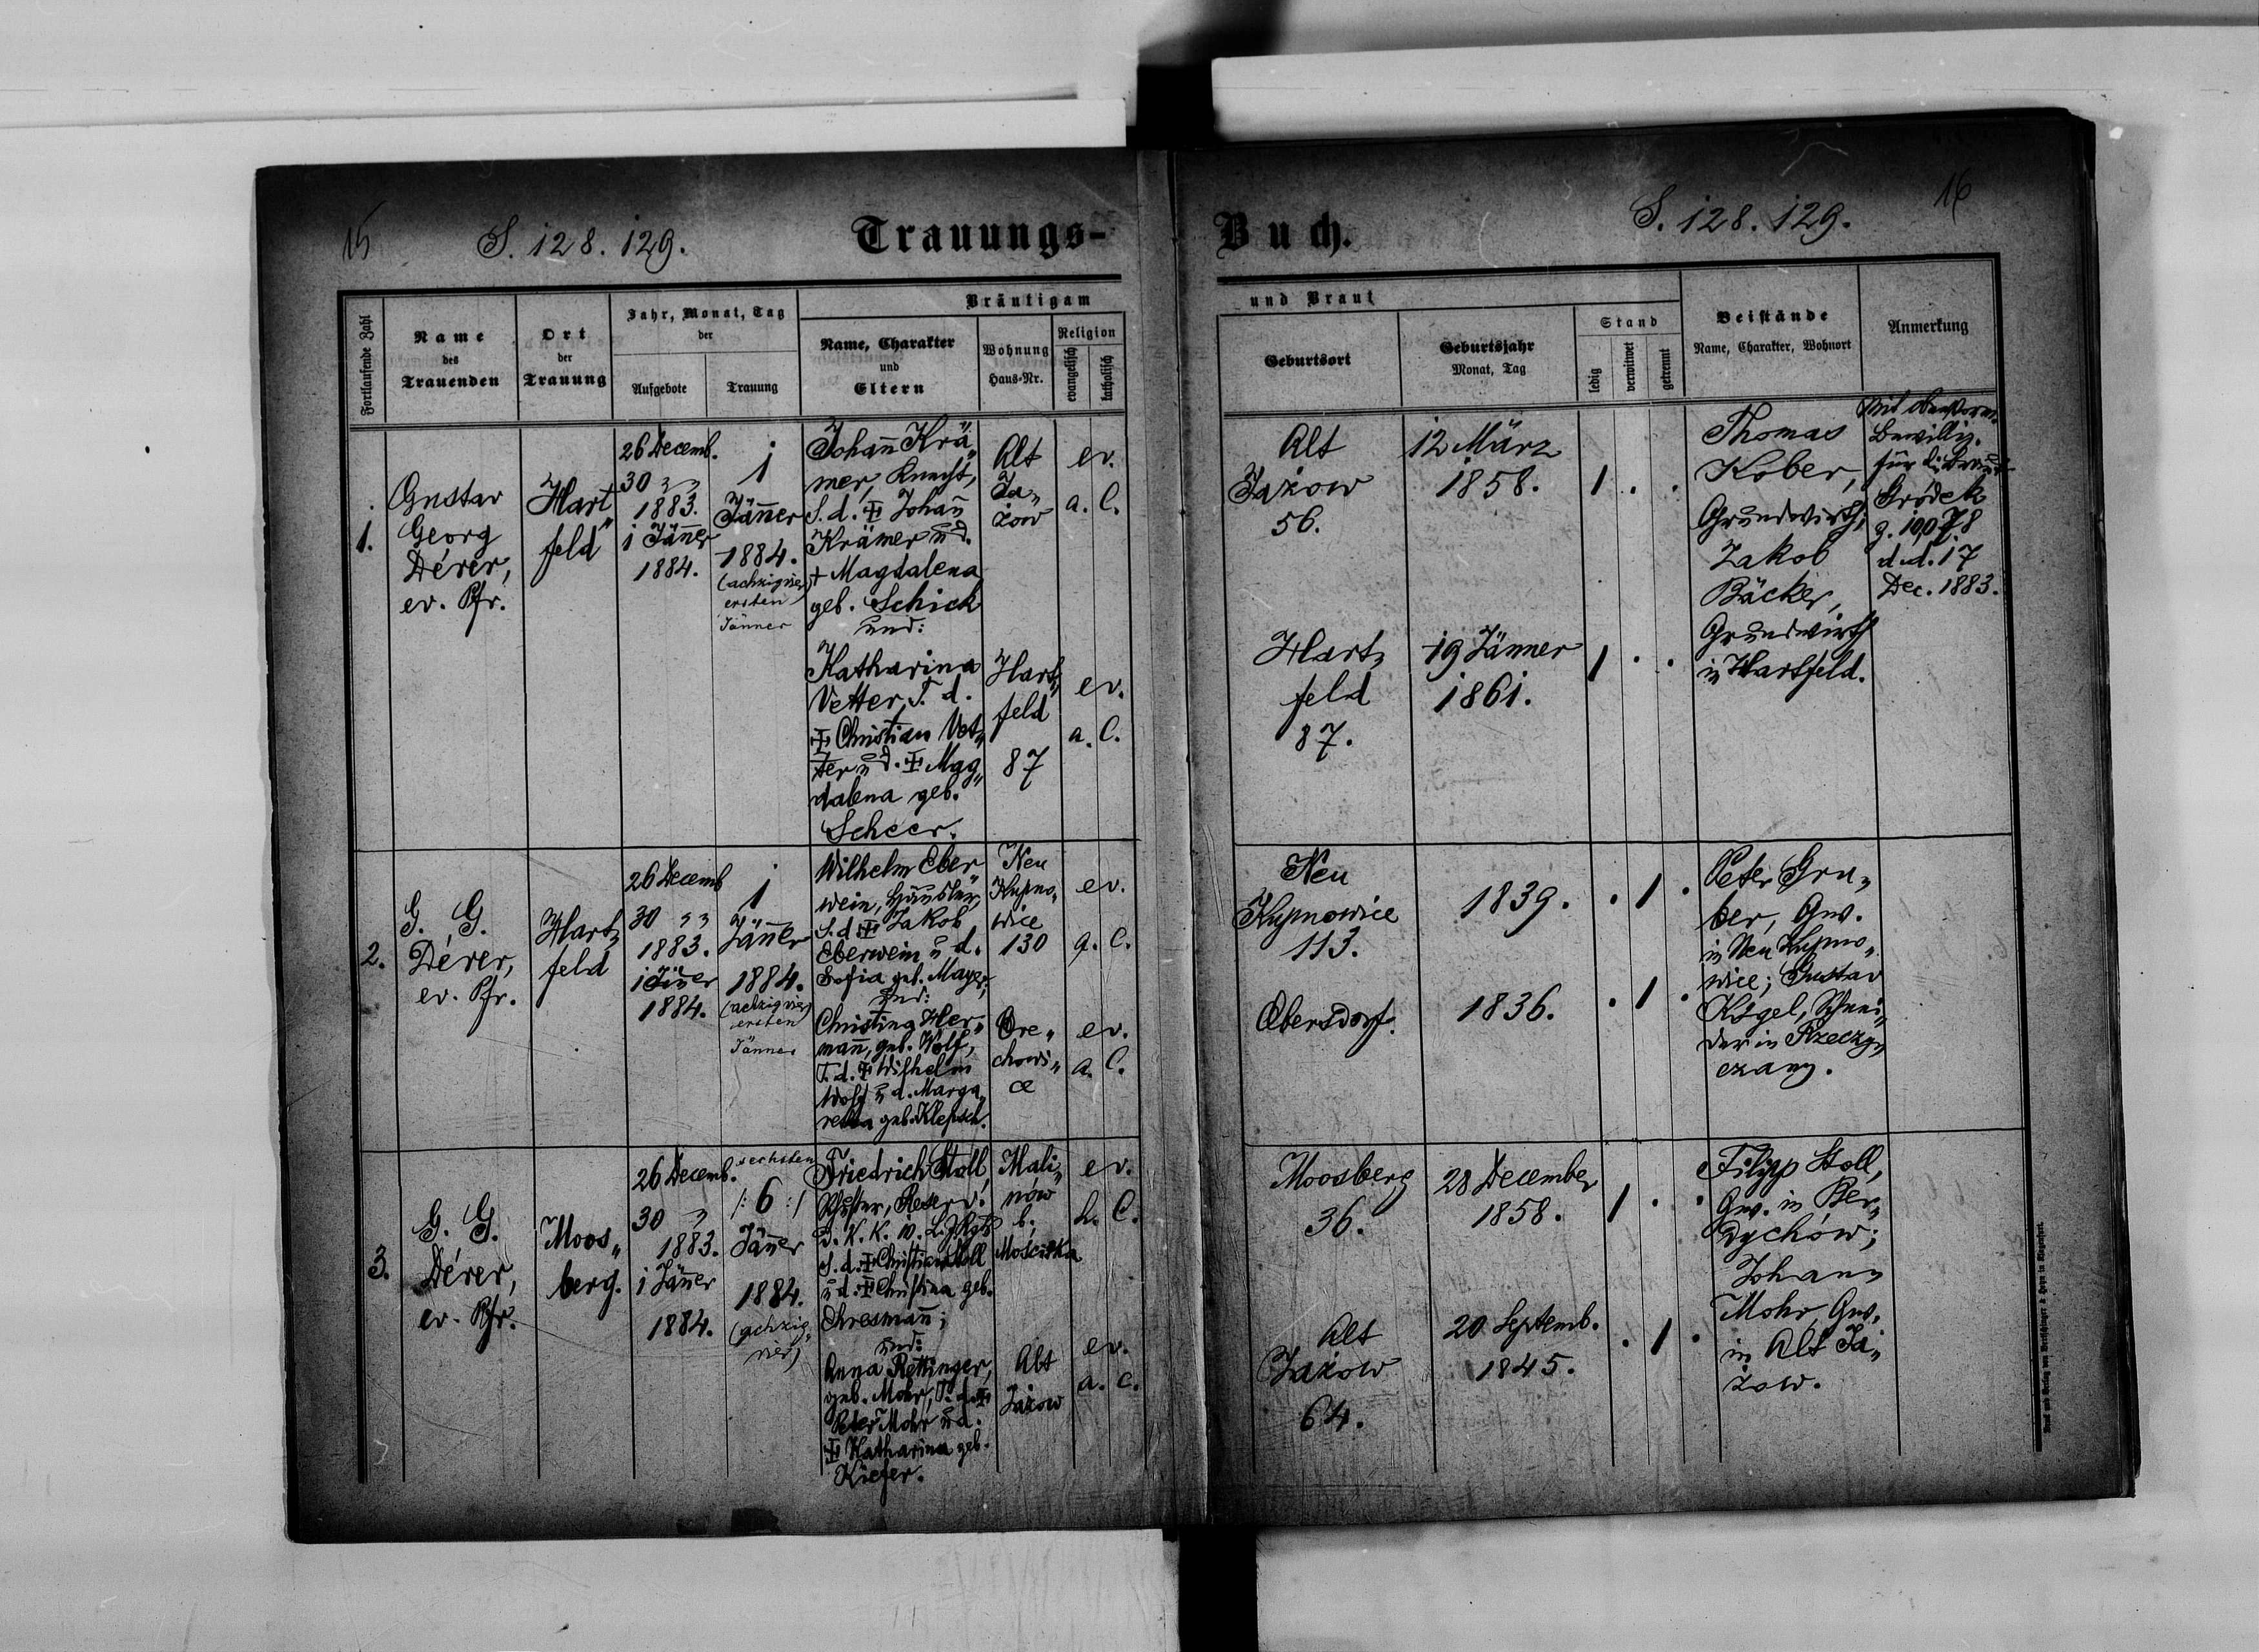 15
S. 128. 129.
Trauungs-
Buch.
S. 128. 129.
16
Fortlaufende Zahl
Name
des
Trauenden
Ort
der
Trauung
Jahr, Monat, Tag
der
Aufgebote
Trauung
Bräutigam
Name, Charakter
und
Eltern
Wohnung
Haus-Nr.
Religion
evangelisch
katholisch
und Braut
Geburtsort
Geburtsjahr
Monat, Tag
Stand
ledig
verwitwet
getrennt
Beistände
Name, Charakter, Wohnort
Anmerkung
1.
Gustav
Georg
Dérer,
ev. Pfr.
Hart„
feld
26 Decemb.
30 „ „
1883.
1 Jäner
1884.
1
Jäner
1884.
(achzigvier)
ersten
Jänner
Johañ Krä„
mer, Knecht,
S. d. ‡ Johañ
Krämer u d.
† Magdalena
geb. Schick
und:
Katharina
Vetter, T. d.
‡ Christian Vet„
ter u d. ‡ Mag„
dalena geb.
Scheer.
Alt
Ja„
żow
ev.
a. C.
Hart„
feld
87
ev.
a. C.
Alt
Jażow
56.
12 März
1858.
1 . .
Hart„
feld
87.
19 Jänner
1861.
1 . .
Thomas
Kober,
Grundwirth;
Jakob
Bäcker,
Grundwirth
in Hartfeld.
Bewillig.
für die Braut
Gródek
d. d. 17
Dec. 1883.
2.
G. G.
Dérer,
ev. Pfr.
Hart„
feld
26 Decemb
30 „ „
1883.
1 Jäner
1884.
1
Jäner
1884.
(achzigvier)
ersten
Jänner
Wilhelm Eber„
wein, Häusler,
S. d. ‡ Jakob
Eberwein u d.
Sofia geb. Mayer;
und:
Christina Her„
mañ, geb. Wolf,
T. d. ‡ Wilhelm
Wolf u d. Marga„
retha geb. Klepsch.
Neu
Kupno„
wice
130
ev.
a. C.
Ore„
chowi„
ce
ev.
a. C.
Neu
Kupnowice
113.
1839.
. 1 .
Ebersdorf.
1836.
. 1 .
Peter Gru„
ber, Gw.
in Neu Kupno„
wice; Gustav
Kögel, Schnei„
der in Rzeczy„
czany.
3.
G. G.
Dérer,
ev. Pfr.
Moos„
berg.
26 Decemb.
30 „
1883.
1 Jäner
1884.
sechsten
/: 6 :/
Jäner
1884.
(achzig„
vier)
Friedrich Stoll,
S. d. ‡ Christian Stoll
u d. ‡ Christina geb.
und:
Anna Rettinger,
geb. Mohr, T. d. ‡
Peter Mohr u d.
‡ Katharina geb.
Kiefer.
Mali„
nów
b.
Mościska
ev.
h. C.
Alt
Jażow
ev.
a. C.
Moosberg
36.
28 December
1858.
1 . .
Alt
Jażow
64.
20 Septemb.
1845.
. 1 .
Filipp Stoll,
Gw. in Ber„
dychów;
Johann
Mohr, Gw.
in Alt Ja„
żow.